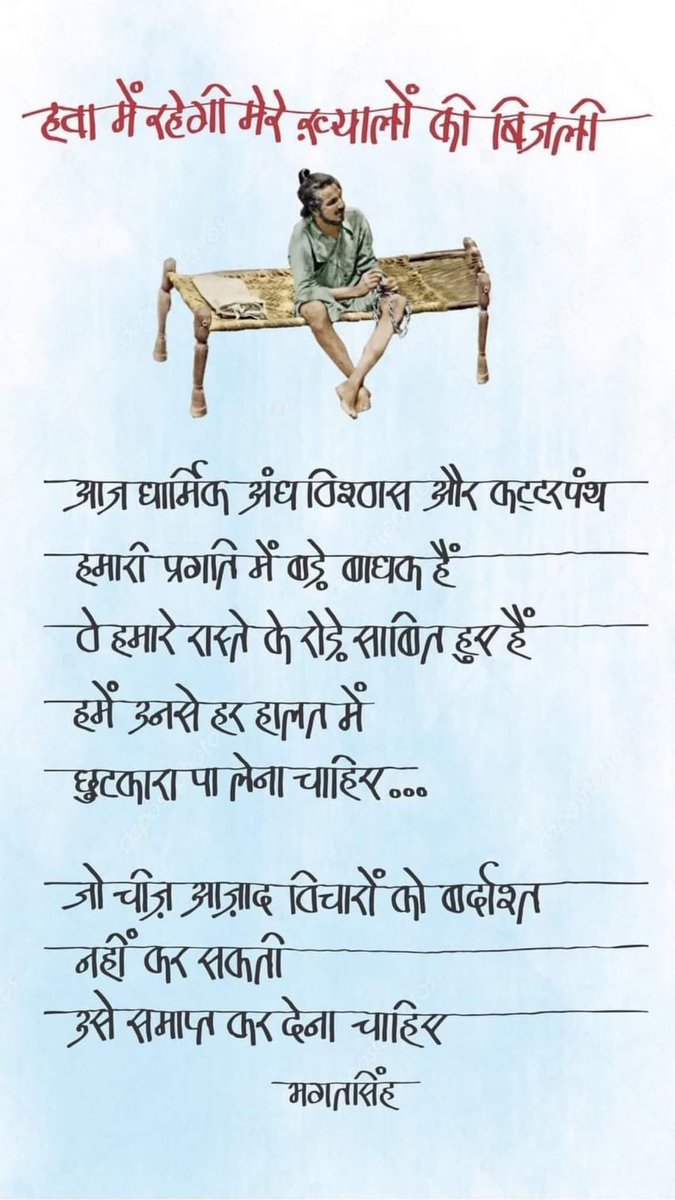 हवा में रहेगी मेरे ख़्यालों की बिजली
आज धार्मिक अंध विश्वास और कट्टरपंथ
हमारी प्रगति में बड़े बाधक हैं
वे हमारे रास्ते के रोड़े साबित हुए हैं
हमें उनसे हर हालत में
छुटकारा पा लेना चाहिए...
जो चीज़ आज़ाद विचारों को बर्दाश्त
नहीं कर सकती
उसे समाप्त कर देना चाहिए
भगतसिंह